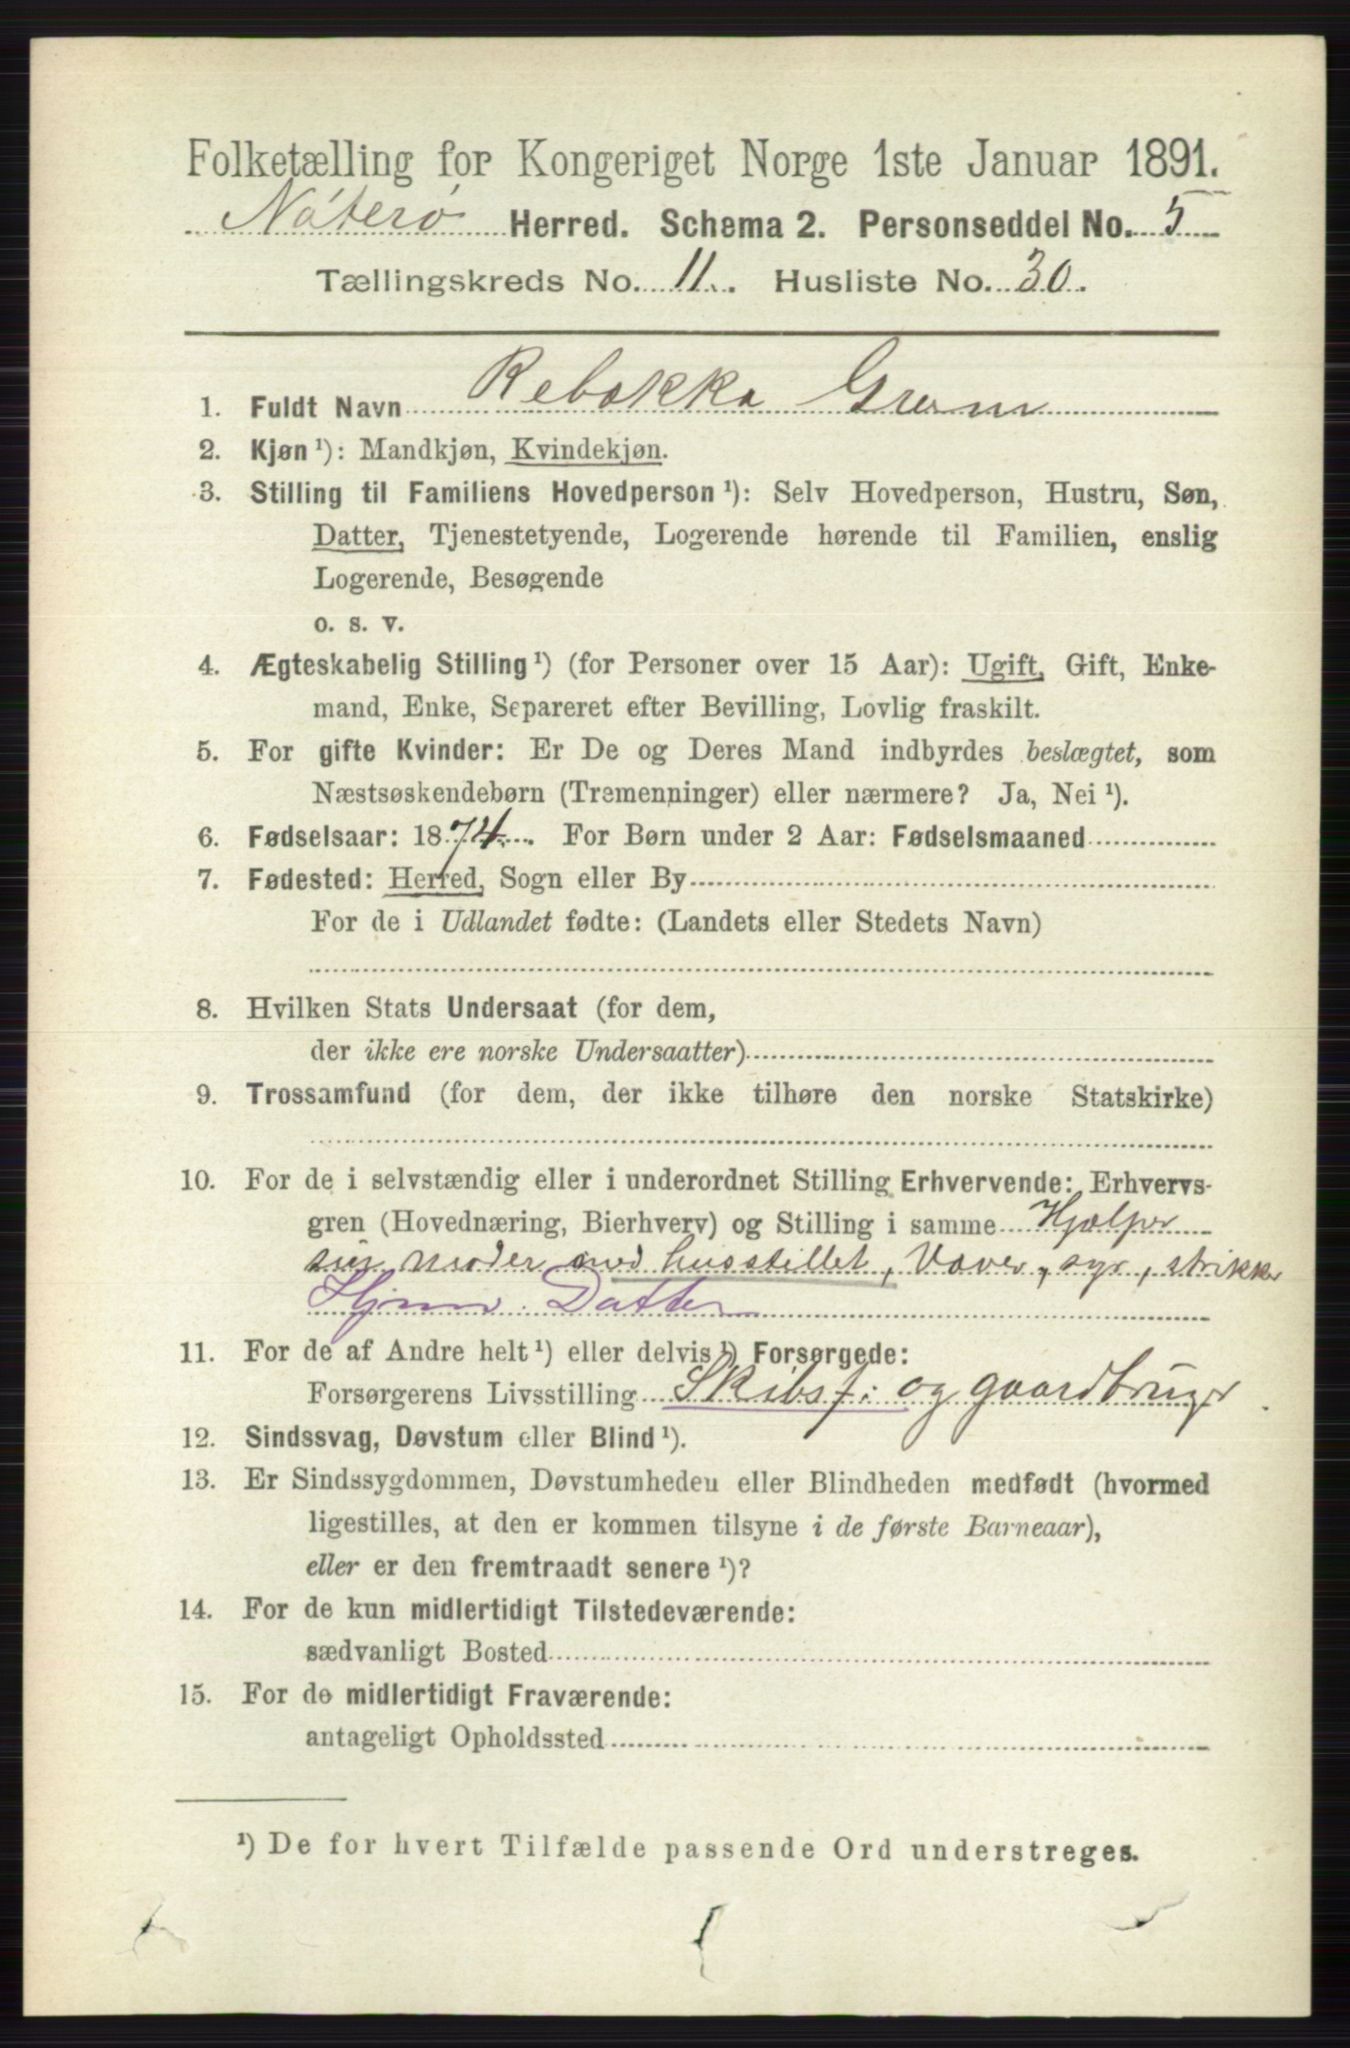 Folketælling for Kongeriget Norge 1ste Januar 1891.
Nøterø Herred. Schema 2. Personseddel No. 5
Tællingskreds No. 11. Husliste No. 30.
1. Fuldt Navn Rebekka Grøm
2. Kjøn ¹): Mandkjøn, Kvindekjøn.
3. Stilling til Familiens Hovedperson ¹): Selv Hovedperson, Hustru, Søn,
Datter, Tjenestetyende, Logerende hørende til Familien, enslig
Logerende, Besøgende
o. s. v.
4. Ægteskabelig Stilling ¹) (for Personer over 15 Aar): Ugift, Gift, Enke-
mand, Enke, Separeret efter Bevilling, Lovlig fraskilt.
5. For gifte Kvinder: Er De og Deres Mand indbyrdes beslægtet, som
Næstsøskendebørn (Tremenninger) eller nærmere? Ja, Nei ¹).
6. Fødselsaar: 1874. For Børn under 2 Aar: Fødselsmaaned
7. Fødested: Herred, Sogn eller By
For de i Udlandet fødte: (Landets eller Stedets Navn)
8. Hvilken Stats Undersaat (for dem,
der ikke ere norske Undersaatter)
9. Trossamfund (for dem, der ikke tilhøre den norske Statskirke)
10. For de i selvstændig eller i underordnet Stilling Erhvervende: Erhvervs-
gren (Hovednæring, Bierhverv) og Stilling i samme Hjælper
sin moder med husstellet, Væver, syr, strikker
Hjmv. Datter
11. For de af Andre helt ¹) eller delvis ¹) Forsørgede:
Forsørgerens Livsstilling Skibsf: og gaardbruger
12. Sindssvag, Døvstum eller Blind ¹).
13. Er Sindssygdommen, Døvstumheden eller Blindheden medfødt (hvormed
ligestilles, at den er kommen tilsyne i de første Barneaar),
eller er den fremtraadt senere ¹)?
14. For de kun midlertidigt Tilstedeværende:
sædvanligt Bosted
15. For de midlertidigt Fraværende:
antageligt Opholdssted
¹) De for hvert Tilfælde passende Ord understreges.